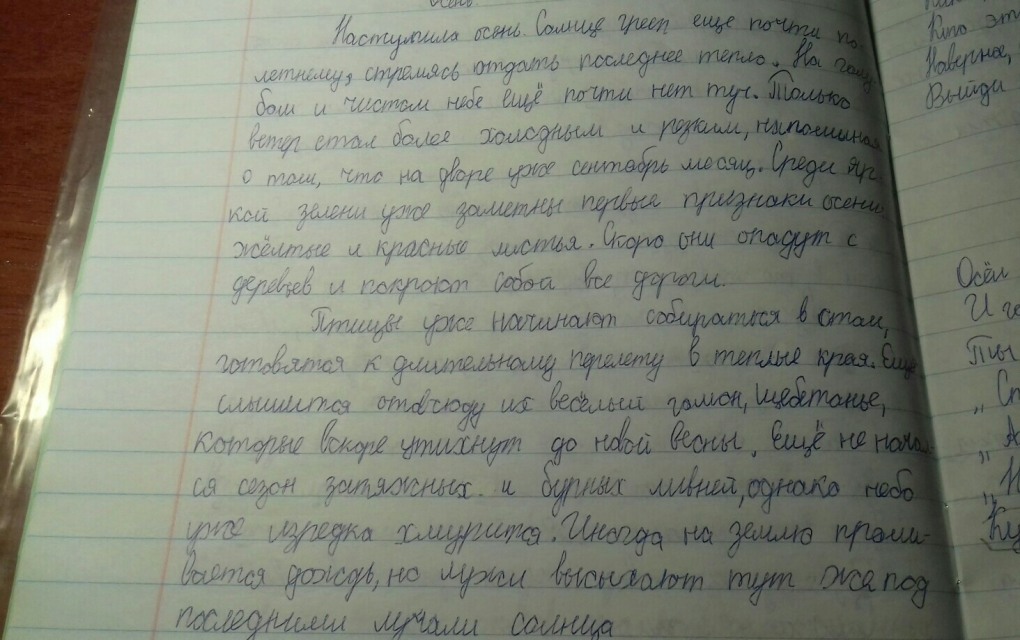 Осень
Наступила осень. Солнце греет еще почти по
летнему, стремясь отдать последнее тепло. На голу
бом и чистом небе ещё почти нет туч. Только
ветер стал более холодным и резким, напоминая
о том, что на дворе уже сентябрь месяц. Среди яр-
кой зелени уже заметны первые признаки осени
жёлтые и красные листья. Скоро они опадут с
деревьев и покроют собой все дороги.
Птицы уже начинают собираться в стаи,
готовятся к длительному перелету в теплые края. Еще
слышится отовсюду их весёлый гомон, щебетанье,
которые вскоре утихнут до новой весны. Ещё не начал-
ся сезон затяжных и бурных ливней, однако небо
уже изредка хмурится. Иногда на землю проли-
вается дождь, но лужи высыхают тут же под
последними лучами солнца
Кто эт
Наверное,
Выйди
Осёл
И го
Ты
„ Сп
„ А
„ Н
Ку